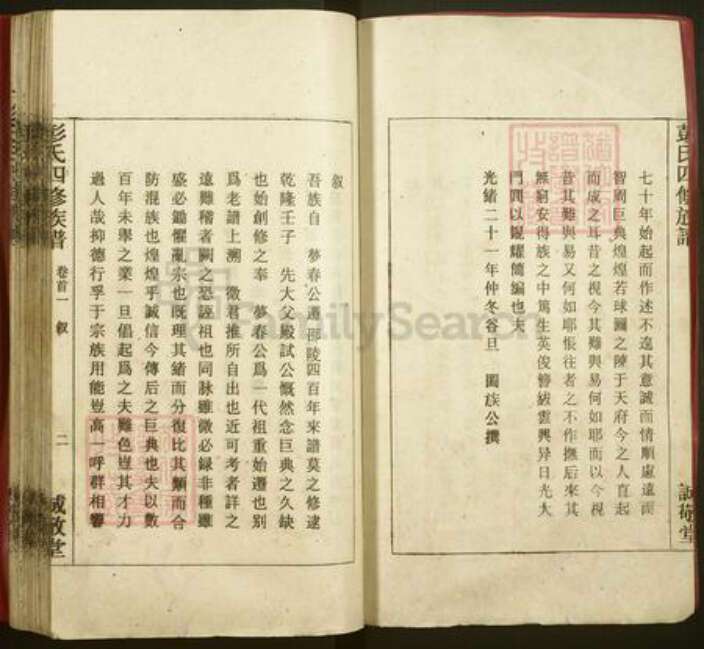 彭氏四修族譜
誠敬堂
七十年始起而作述不遠其意誠而情順慮遠而
智周巨典煌煌若球圖之陳于天府今之人直起
而成之耳昔之視今其難與易何如耶而以今視
昔其難與易又何如耶恨往者之不作撫后來其
無窮安得族之中篤生英俊簪紱雲興异日光大
門閭以輥耀簡編也夫
光緒二十一年仲冬谷旦 闔族公撰
敘
吾族自 夢春公遷邵陵四百年來譜莫之修逮
乾隆壬子 先大父殿試公慨然念巨典之久缺
也始創修之奉 夢春公爲一代祖重始遷也別
爲老譜上溯 徵君推所自出也近可考者詳之
遠難稽者闕之恐誣祖也同脉雖微必録非種雖
盛必鋤懼亂宗也既理其緒而分復比其類而合
防混族也煌煌乎誠信今傳后之巨典也夫以數
百年未舉之業一旦倡起爲之夫難色豈其才力
過人哉抑德行孚于宗族用能豈高一呼群相響
彭氏四修族譜 卷首一 敘 二 誠敬堂
FamilySearch